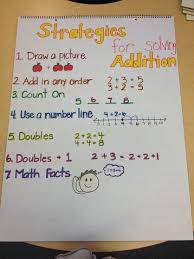 Strategies
for solving
Addition
1. Draw a picture.
+
2. Add in any order 2 + 3 = 5
3 + 2 = 5
3 Count On 5 6 7 8
4 Use a number line 4+2=6
5 Doubles 2+2=4
4+4=8
6. Doubles + 1 2 + 3 = 2+2+1
7 Math Facts